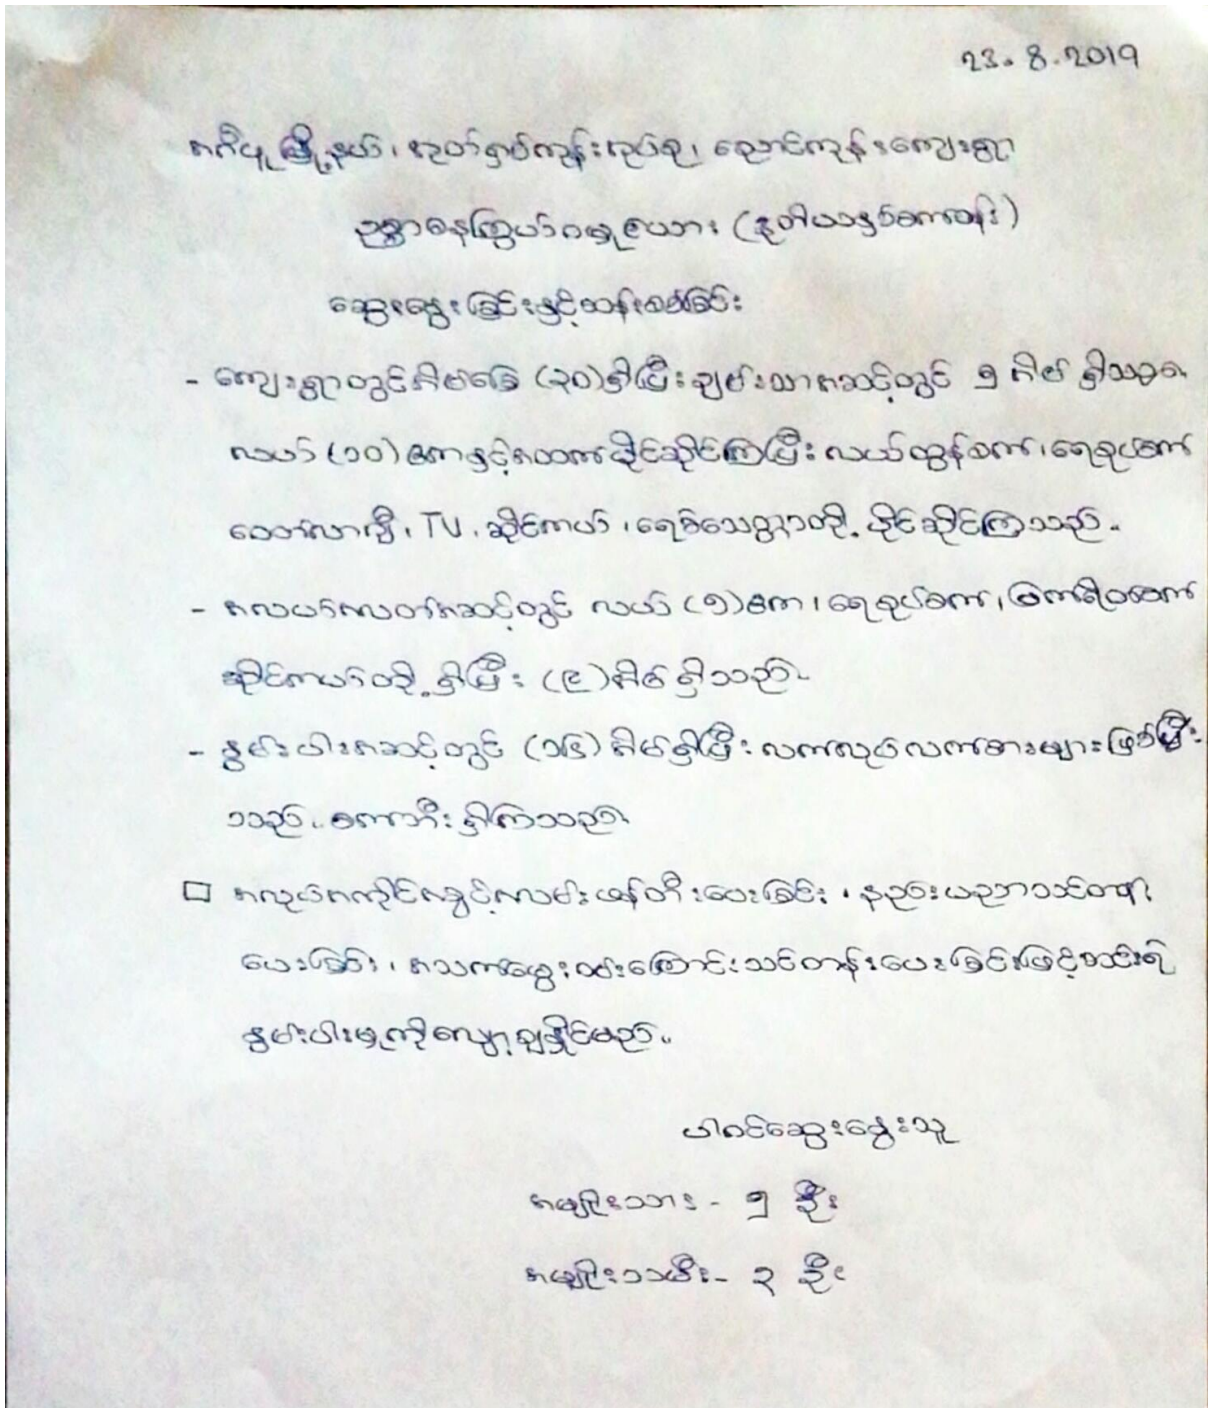 23.8.2019
အင်္ဂပူမြို့နယ်၊ အုတ်ရှစ်ကုန်းအုပ်စု၊ ညောင်ကုန်းကျေးရွာ
ဥစ္စာဓနကြွယ်ဝမှုဇယား (ဒုတိယနှစ်စကာတန်း)
ဆွေးနွေးခြင်းနှင့်ဆန်းစစ်ခြင်း
- ကျေးရွာတွင်အိမ်ခြေ (၃၀)ရှိပြီးချမ်းသာအဆင့်တွင် ၅ အိမ် ရှိသည်။
လယ် (၁၀) ဧကနှင့်အထက်ပိုင်ဆိုင်ကြပြီး လယ်ထွန်စက်၊ ရေစုပ်စက်
ထော်လာဂျီ၊ TV၊ ဆိုင်ကယ်၊ ရေခဲသေတ္တာတို့ ပိုင်ဆိုင်ကြသည်။
- အလယ်အလတ်အဆင့်တွင် လယ် (၅) ဧက၊ ရေစုပ်စက်၊ မြက်ရိတ်စက်
ဆိုင်ကယ်တို့ ရှိပြီး (၉) အိမ် ရှိသည်။
- နွမ်းပါးအဆင့်တွင် (၁၆) အိမ်ရှိပြီး လက်လုပ်လက်စားများဖြစ်ပြီး
သည်။ စက်ဘီး ရှိကြသည်။
□ အလုပ်အကိုင်အခွင့်အလမ်းဖန်တီးပေးခြင်း၊ နည်းပညာသင်တန်း
ပေးခြင်း၊ အသက်မွေးဝမ်းကြောင်းသင်တန်းပေးခြင်းဖြင့်ဆင်းရဲ
နွမ်းပါးမှုကိုလျှော့ချနိုင်မည်။
ပါဝင်ဆွေးနွေးသူ
အမျိုးသား - ၅ ဦး
အမျိုးသမီး - ၃ ဦး